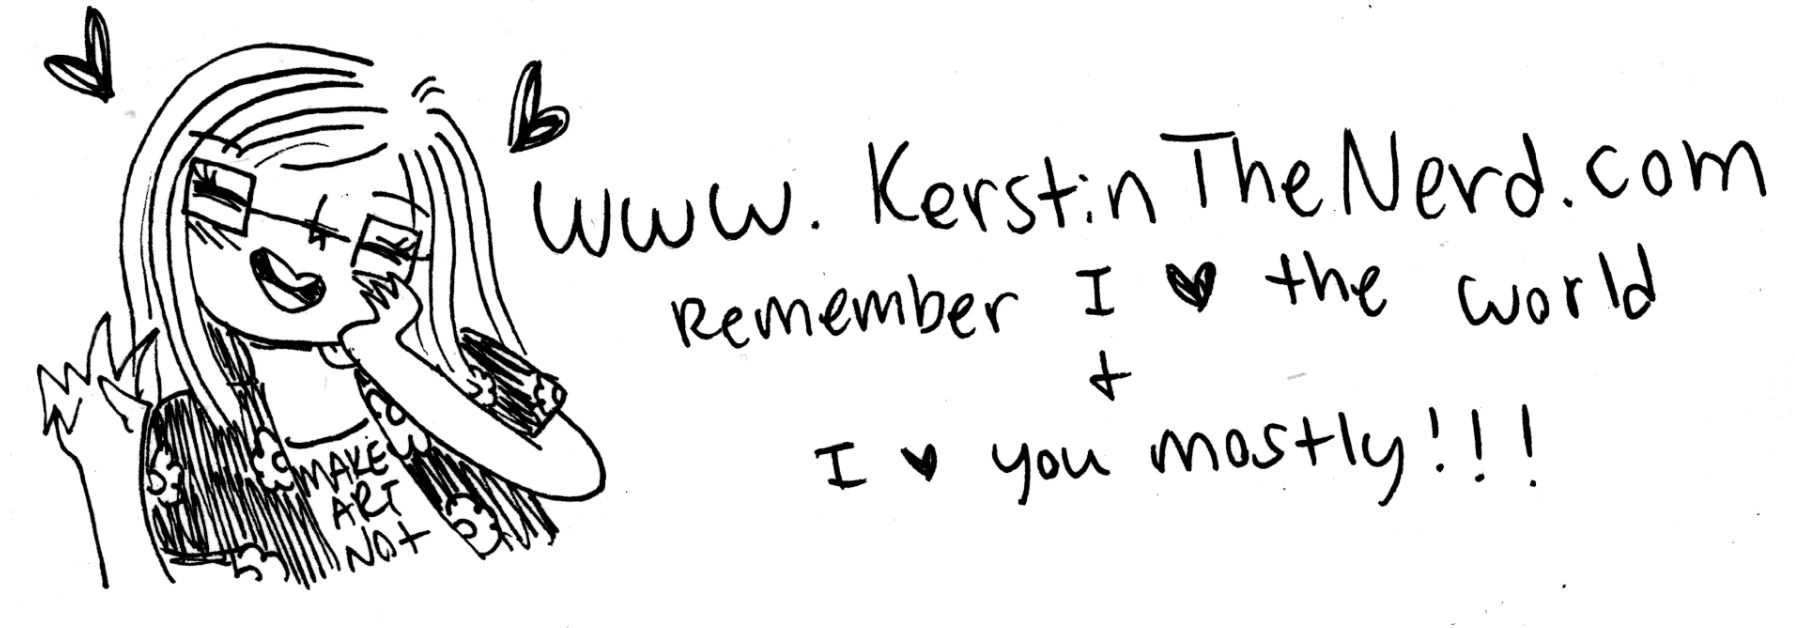 www.KerstinTheNerd.com
Remember I ♥ the world
+
I ♥ you mostly!!!
MAKE
ART
NOt